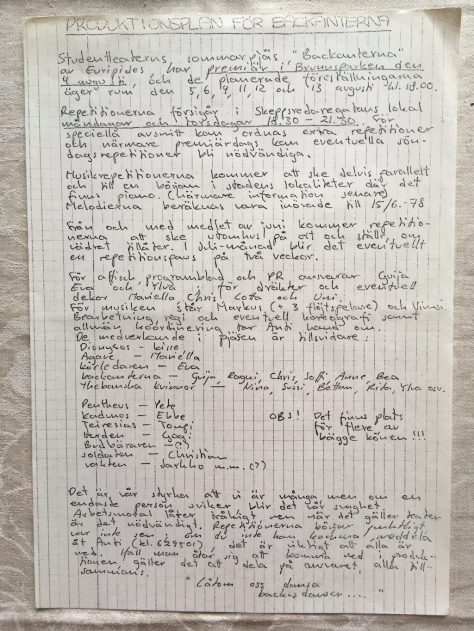 PRODUKTIONSPLAN FÖR BACKANTERNA
Studentteaterns sommarpjäs "Backanterna"
av Euripides, har premiär i Brunnsparken den
4 augusti, och de planerade föreställningarna
äger rum den 5, 6, 9, 11, 12 och 13 augusti kl. 18.00.
Repetitionerna försigår i Skeppsredaregatans lokal
måndagar och torsdagar 18.30 – 21.30. För
speciella avsnitt kan ordnas extra repetitioner
och närmare premiärdags kan eventuella sön-
dagsrepetitioner bli nödvändiga.
Musikrepetitionerna kommer att ske delvis parallellt
och till en början i stadens lokaliteter där det
finns piano. (närmare information senare)
Melodierna beräknas vara inövade till 15/6.-78
Från och med medlet av juni kommer repetitio-
nerna att ske utomhus på ort och ställe, om
vädret tillåter. I Juli-månad blir det eventuellt
en repetitionspaus på två veckor.
För affisch, programblad och PR ansvarar Guija
Eva och Ylva; för dräkter och eventuell
dekor Mariella, Chris, Cotta och Umi.
För musiken står Markus (+ 3 flöjtspelare) och
Bearbetning regi och eventuell koreografi samt
allmän koordinering tar Anti hand om.
De medverkande i pjäsen är tillsvidare:
Dionysos – kisse
Agave – Mariella
körledaren – Eva
backanterna – Guija, Chris, Soffi, Anne, Bea
Thebanska kvinnor – Nina, Sussi, Bettan, Rita, Ylva osv.
Pentheus – Pete
Kadmos – Ebbe
Teiresias – Tomi
herden –
Budbäraren – (?)
soldaten – Christian
vakten – Jarkko m.m. (?)
OBS! Det finns plats
för flere av
bägge könen!!!
Det är vår styrka att vi är många men om en
endaste person sviker blir det vår svaghet.
Arbetsmoral låter tråkigt men när det gäller teater
är det nödvändigt. Repetitionerna börjar punktligt
var inte sen om du inte kan komma, meddela
åt Anti (tel. 629501), det är viktigt att alla är
med. Ifall man åtar sig att komma med i produk-
tionen, gäller det att dela på ansvaret, alla till-
sammans.
"Låtom oss dansa
backusdanser...."